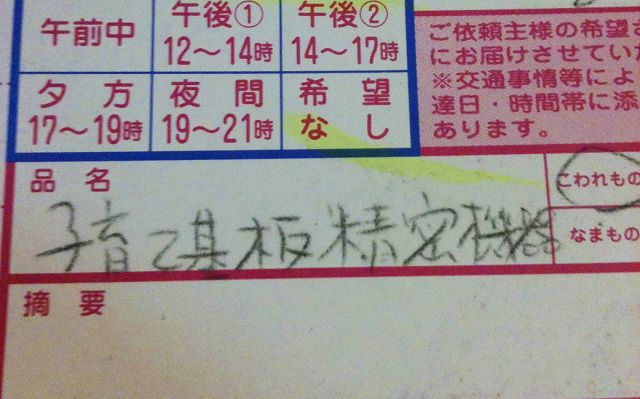 午前中
午後①
12〜14時
午後②
14〜17時
夕方
17〜19時
夜間
19〜21時
希望
なし
ご依頼主様の希望
にお届けさせていた
※交通事情等によ
達日・時間帯に添
あります。
品名
子育て基板精密機器
こわれもの
なまもの
摘要